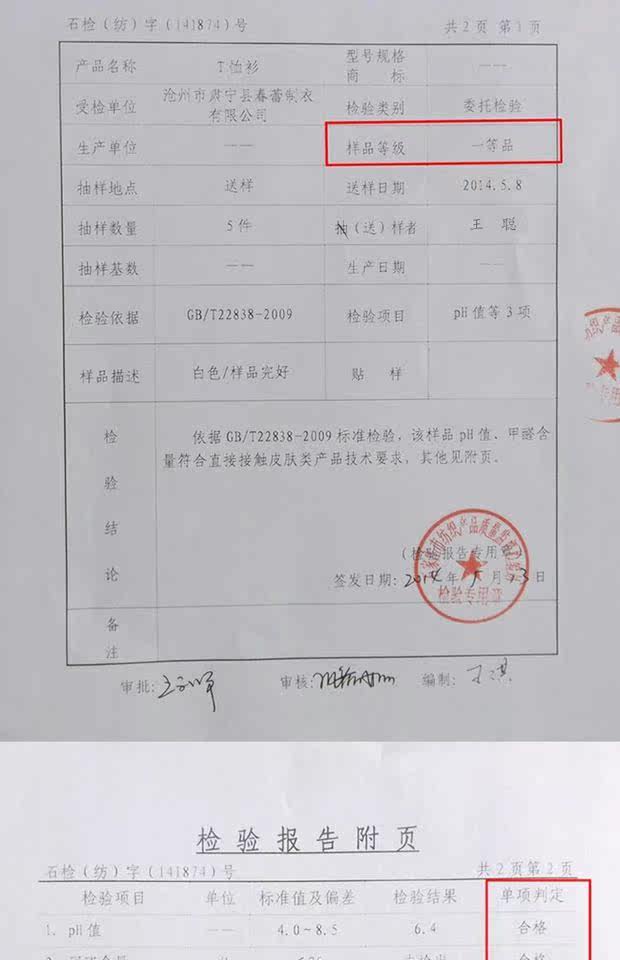 石检(纺)字(141874)号 共2页 第1页
产品名称 T恤衫 型号规格
商 标 ——
受检单位 沧州市肃宁县春蕾制衣
有限公司 检验类别 委托检验
生产单位 —— 样品等级 一等品
抽样地点 送样 送样日期 2014.5.8
抽样数量 5件 抽(送)样者 王 聪
抽样基数 —— 生产日期 ——
检验依据 GB/T22838-2009 检验项目 pH值等3项
样品描述 白色/样品完好 贴 样
检验结论
依据GB/T22838-2009标准检验,该样品pH值、甲醛含
量符合直接接触皮肤类产品技术要求,其他见附页。
(检验报告专用章)
签发日期:2014年5月13日
检验专用章
备注
审批: 审核: 编制:
检验报告附页
石检(纺)字(141874)号 共2页第2页
检验项目 单位 标准值及偏差 检验结果 单项判定
1. pH值 —— 4.0~8.5 6.4 合格